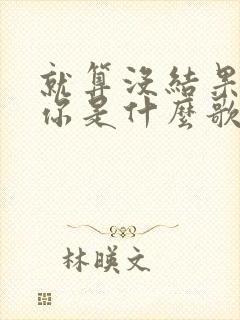 就算沒結果
你是什麼歌
林暎文